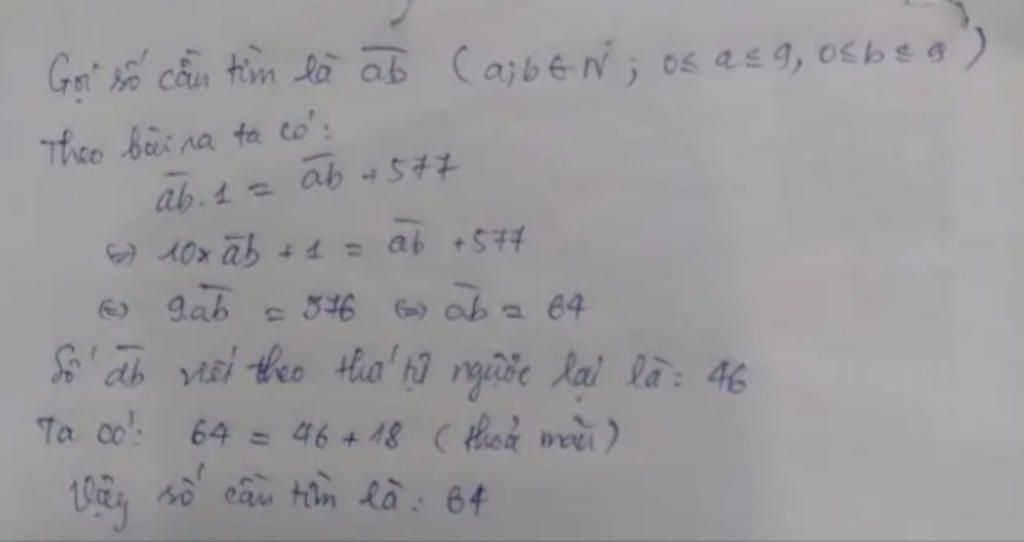 Gọi số cần tìm là ab (a;b ∈ N*; 0≤ a ≤ 9, 0≤ b ≤ 9)
Theo bài ra ta có:
ab.1 = ab + 577
⇔ 10x ab + 1 = ab + 577
⇔ 9ab = 576 ⇔ ab = 64
Số ab viết theo thứ tự ngược lại là: 46
Ta có: 64 = 46 + 18 (thoả mãn)
Vậy số cần tìm là: 64